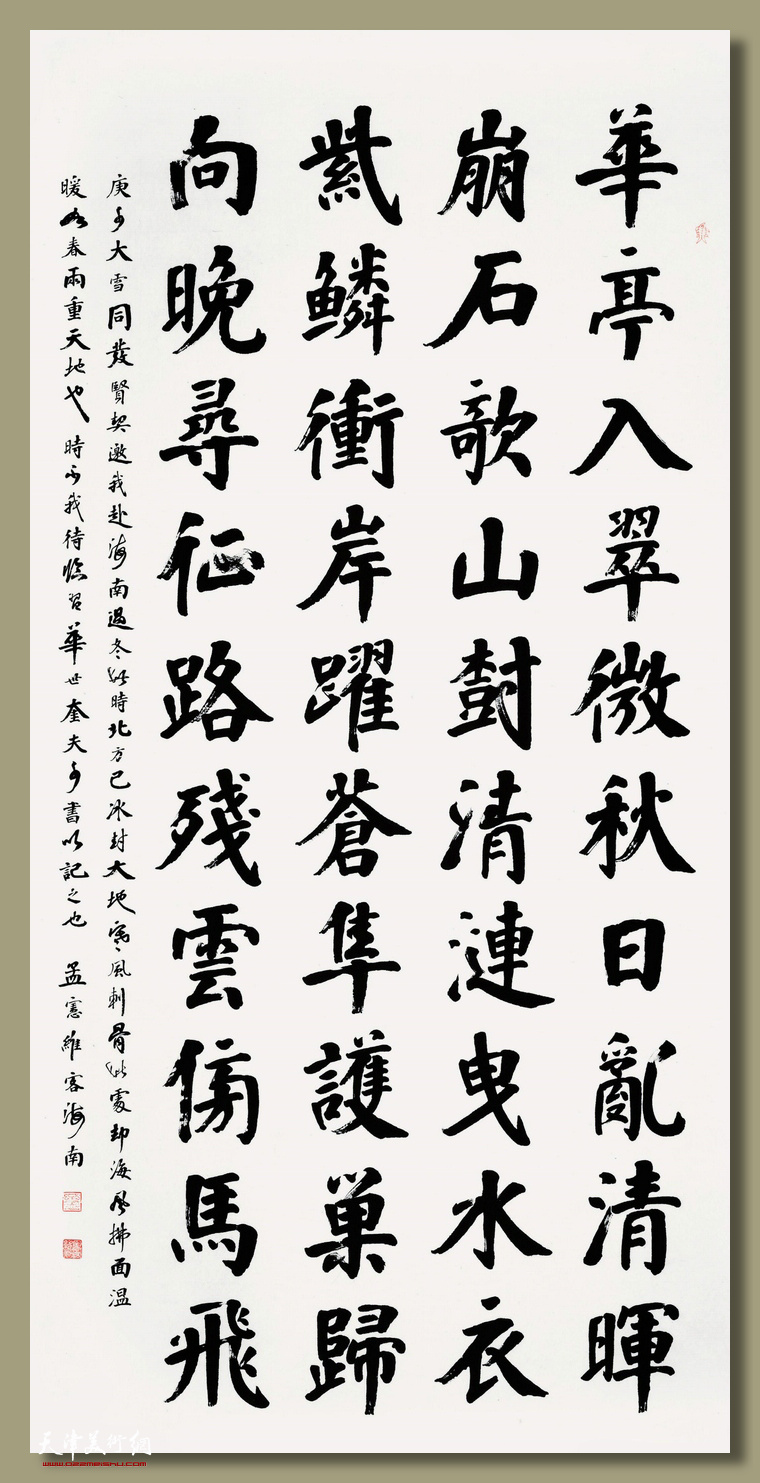 華亭入翠微秋日亂清暉
崩石欹山樹清漣曳水衣
紫鱗衝岸躍蒼隼護巢歸
向晚尋征路殘雲傍馬飛
庚子大雪同發賢契邀我赴海南過冬此時北方已冰封大地寒風刺骨此處却海風拂面温
暖如春兩重天地也時不我待臨習華世奎夫子書以記之也 孟憲維客海南
天津美術網